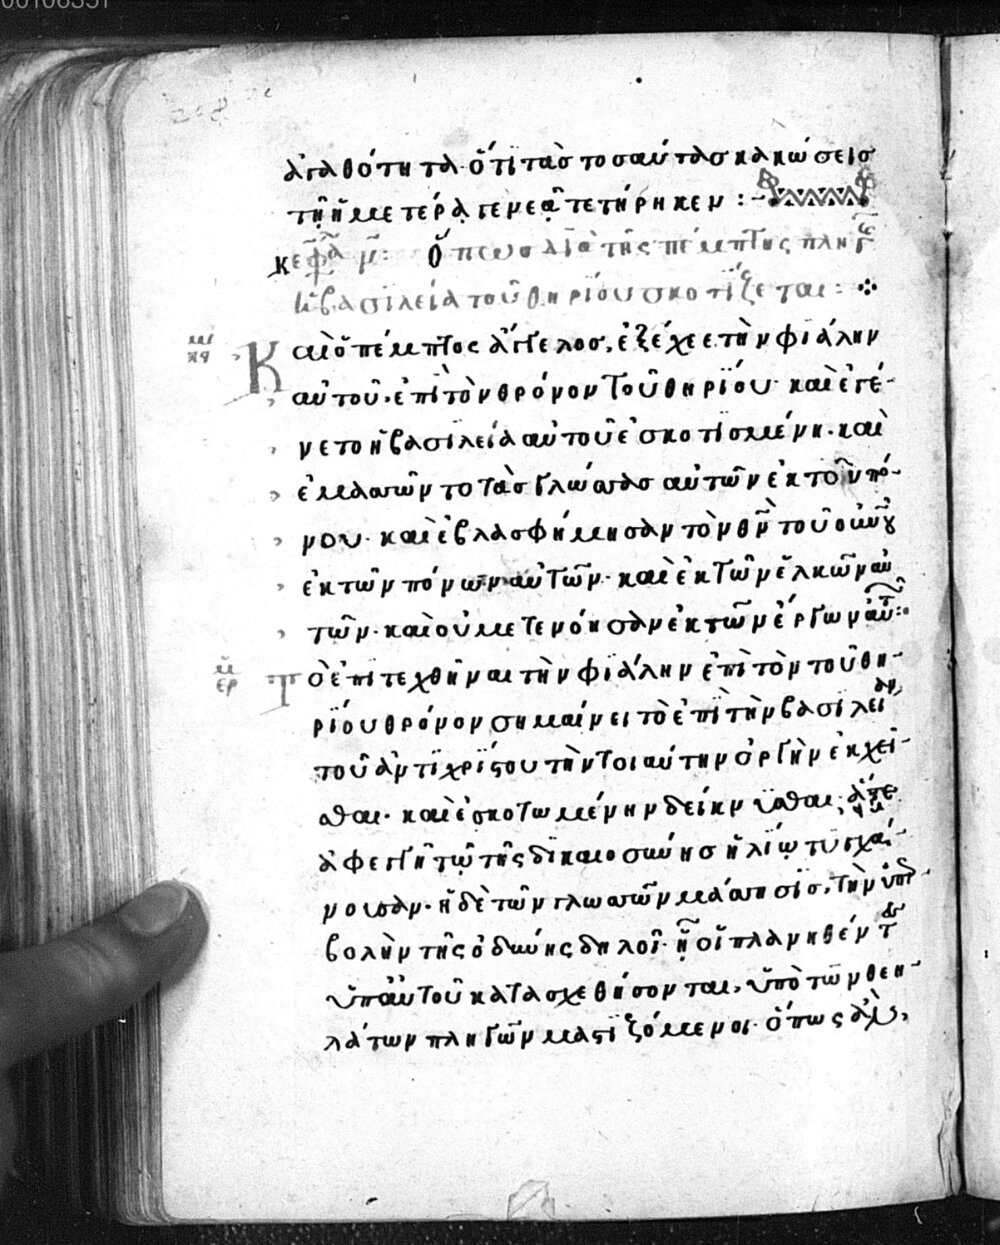 ἀγαθότητα· ὅτι τὰσ τοσαύτασ κακώσεισ
τῇ ἡμετέρᾳ γενεᾷ τετήρηκεν :-
Κεφα μ: Ὅπωσ διὰ τῆς πέμπτης πληγς
ἡ βασϊλεία τοῦ θηρίου σκοτίζεται :
κεί
Καὶ ὁ πέμπτος ἄγγελος, ἐξέχεε τὴν φιάλην
αὐτοῦ, ἐπὶ τὸν θρόνον τοῦ θηρϊου· καὶ ἐγέ-
νετο ἡ βασϊλεία αὐτοῦ ἐσκοτϊσμένη· καὶ
ἐμασσῶντο τὰσ γλώσσασ αὐτῶν ἐκ τοῦ πό-
νου· καὶ ἐβλασφήμησαν τὸν θν τοῦ οὐνου
ἐκ τῶν πόνων αὐτῶν· καὶ ἐκ τῶν ἑλκῶν αὐ
τῶν· καὶ οὐ μετενόησαν ἐκ τῶν ἔργων αὐτ:
ἑρ
Τὸ ἐπιτεχθῆναι τὴν φϊάλην ἐπὶ τὸν τοῦ θη-
ρϊου θρόνον σημαίνει τὸ ἐπὶ τὴν βασϊλείαν
τοῦ ἀντϊχρϊστου τὴν τοιαύτην ὀργὴν ἐκχεῖ-
σθαι· καὶ ἐσκοτωμένην δείκνυσθαι, ἅτε
ἀφεγγῆ τῷ τῆς δικαιοσύνησ ἡλίῳ τυγχά-
νουσαν· ἡ δὲ τῶν γλωσσῶν μάσσησϊσ, τὴν ὑπερ-
βολὴν τῆς ὀδύνης δηλοῖ· ἣν οἱ πλανηθέντες
ὑπ αὐτοῦ κατασχεθήσονται, ὑπὸ τῶν θεη-
λάτων πληγῶν μαστϊζόμενοι· ὅπως